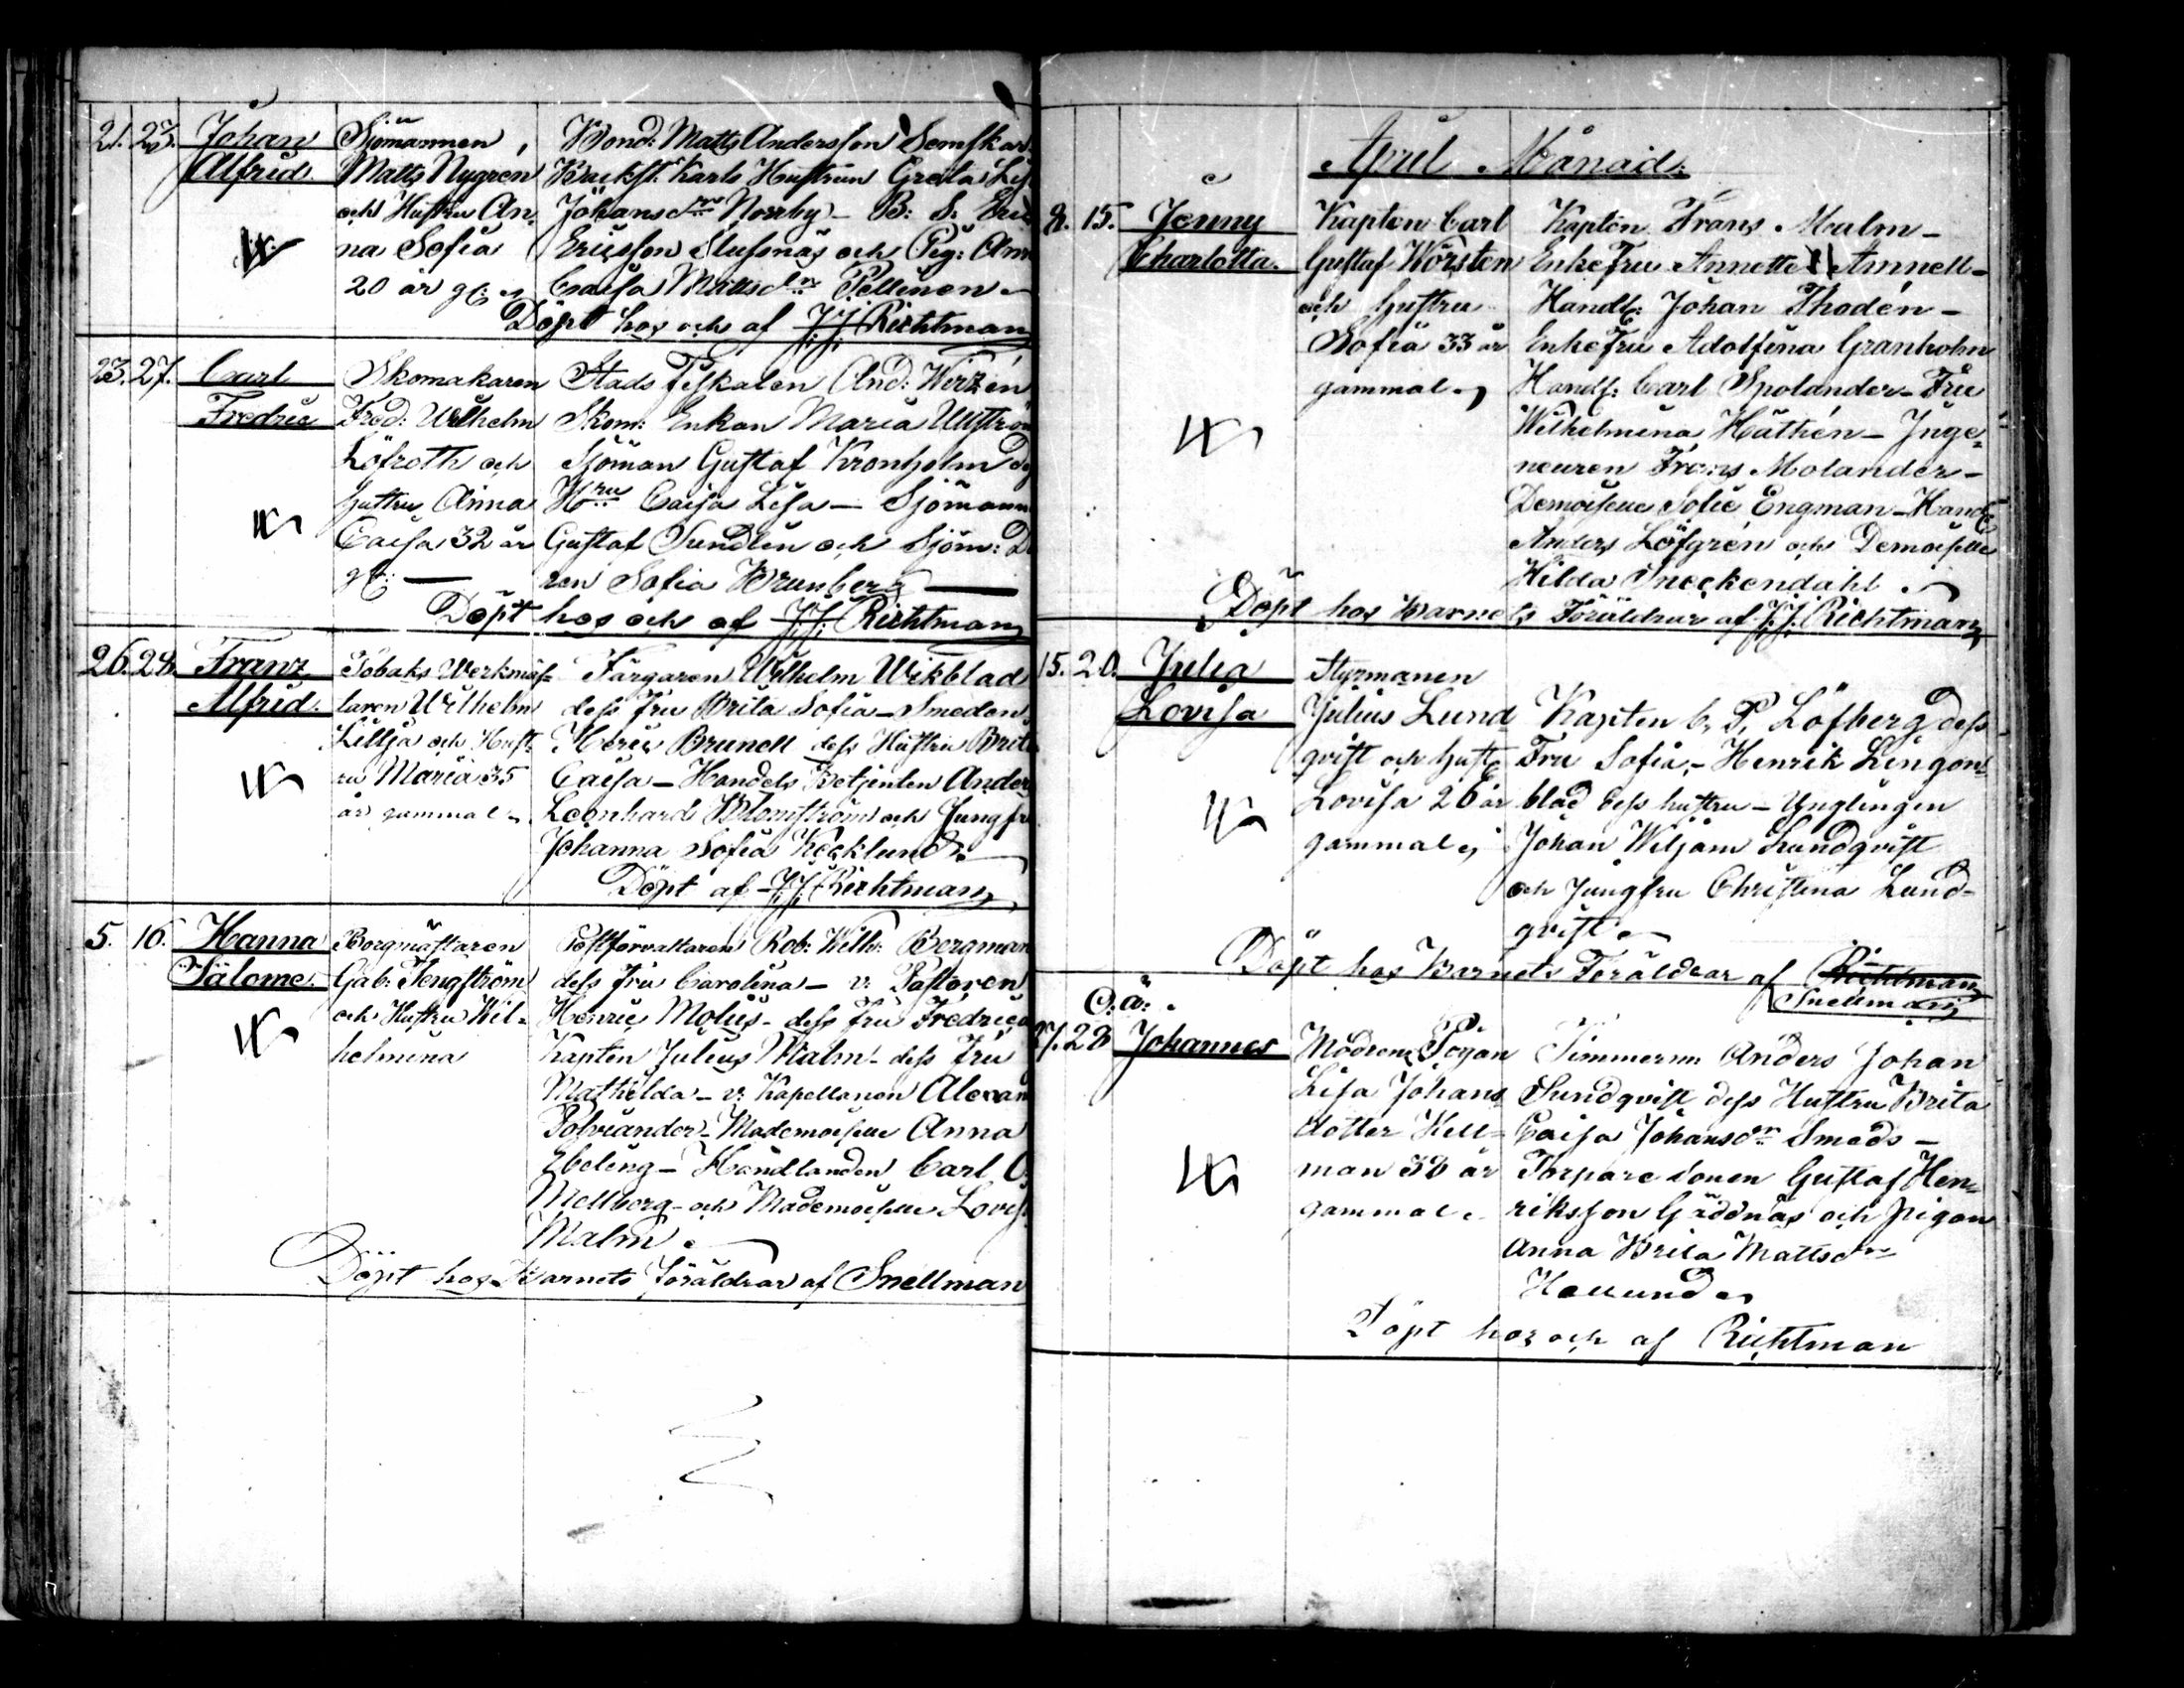 21. 23. Johan Sjömannen Bond: Matts Andersson Semskar
Alfrid. Matts Nygrén Backst: Karls Hustrun Greta Lis
och Hustru An, Johansdr Norrby - B: S:
na Sofia Ericsson Slussnäs och Pig: Ann
20 år gl: Caisa Mattsdr Pellinen
Döpt hos och af J.J. Richtman
23. 27. Carl Skomakaren Stads Fiskalen And: Wirzén
Fredric Fred: Wilhelm Skom: Enkan Maria
Löfroth och Sjöman Gustaf Kronholm
hustru Anna Hru Caisa Lisa - Sjömann
Caisa 32 år Gustaf Sundlin och Sjöm:
gl: ren Sofia Brunberg
Döpt hos och af J.J. Richtman
26. 28. Franz Tobaks Werkmäs- Färgaren Wilhelm Wikblad
Alfrid. taren Wilhelm dess fru Brita Sofia - Smeden
Lillja och Hust- Heric Brunell dess Hustru Brita
ru Maria 35 Caisa - Handels Betjenten Anders
år gammal Leonhard Blomström och Jungfr
Johanna Sofia Kecklund
Döpt af J.J. Richtman
5. 16. Hanna Borgmästaren Postförvaltaren Rob: Wilh: Bergman
Salome. Gab: Tengström dess fru Carolina - v: Pastoren
och Hustru Wil- Henric Molüs - dess fru Fredrica
helmina Kapten Julius Malm - dess fru
Mathilda - v: Kapellanen Alexan
Polviander - Mademoiselle Anna
Ebeling - Handlanden Carl O.
Mellberg - och Mademoiselle Lovis
Malm.
Döpt hos Barnets föräldrar af Snellman
April Månad.
8. 15. Jenny Kapten Carl Kapten Frans Malm -
Charlotta. Gustaf Wörsten Enke Fru Annette Annell -
och hustru Handl: Johan Thodén -
Sofia 33 år Enke Fru Adolfina Granholm
gammal Handl: Carl Spolander - Fru
Wilhelmina Häthén - Inge-
neuren Frans Molander -
Demoiselle Sofie Engman - Handl:
Anders Löfgrén och Demoiselle
Hilda Sneckendahl
Döpt hos Barnets Föräldrar af J.J. Richtman
15. 20. Julia Styrmanen
Lovisa Julius Lund Kapten C. P. Löfberg dess
qvist och hust: Fru Sofia - Henrik Lingon-
Lovisa 26 år blad dess hustru - Ynglingen
gammal Johan Wiljam Lundqvist
och Jungfru Christina Lund-
qvist
Döpt hos Barnets Föräldrar af Richtman
Snellman
O. ä.
27. 28 Johannes Modren Pigan Timmerm Anders Johan
Lisa Johans Sundqvist dess Hustru Brita
dotter Kell- Caisa Johansdr Smeds -
man 38 år Torpare sonen Gustaf Hen-
gammal riksson Gäddnäs och pigan
Anna Brita Mattsdr
Döpt hos och af Richtman